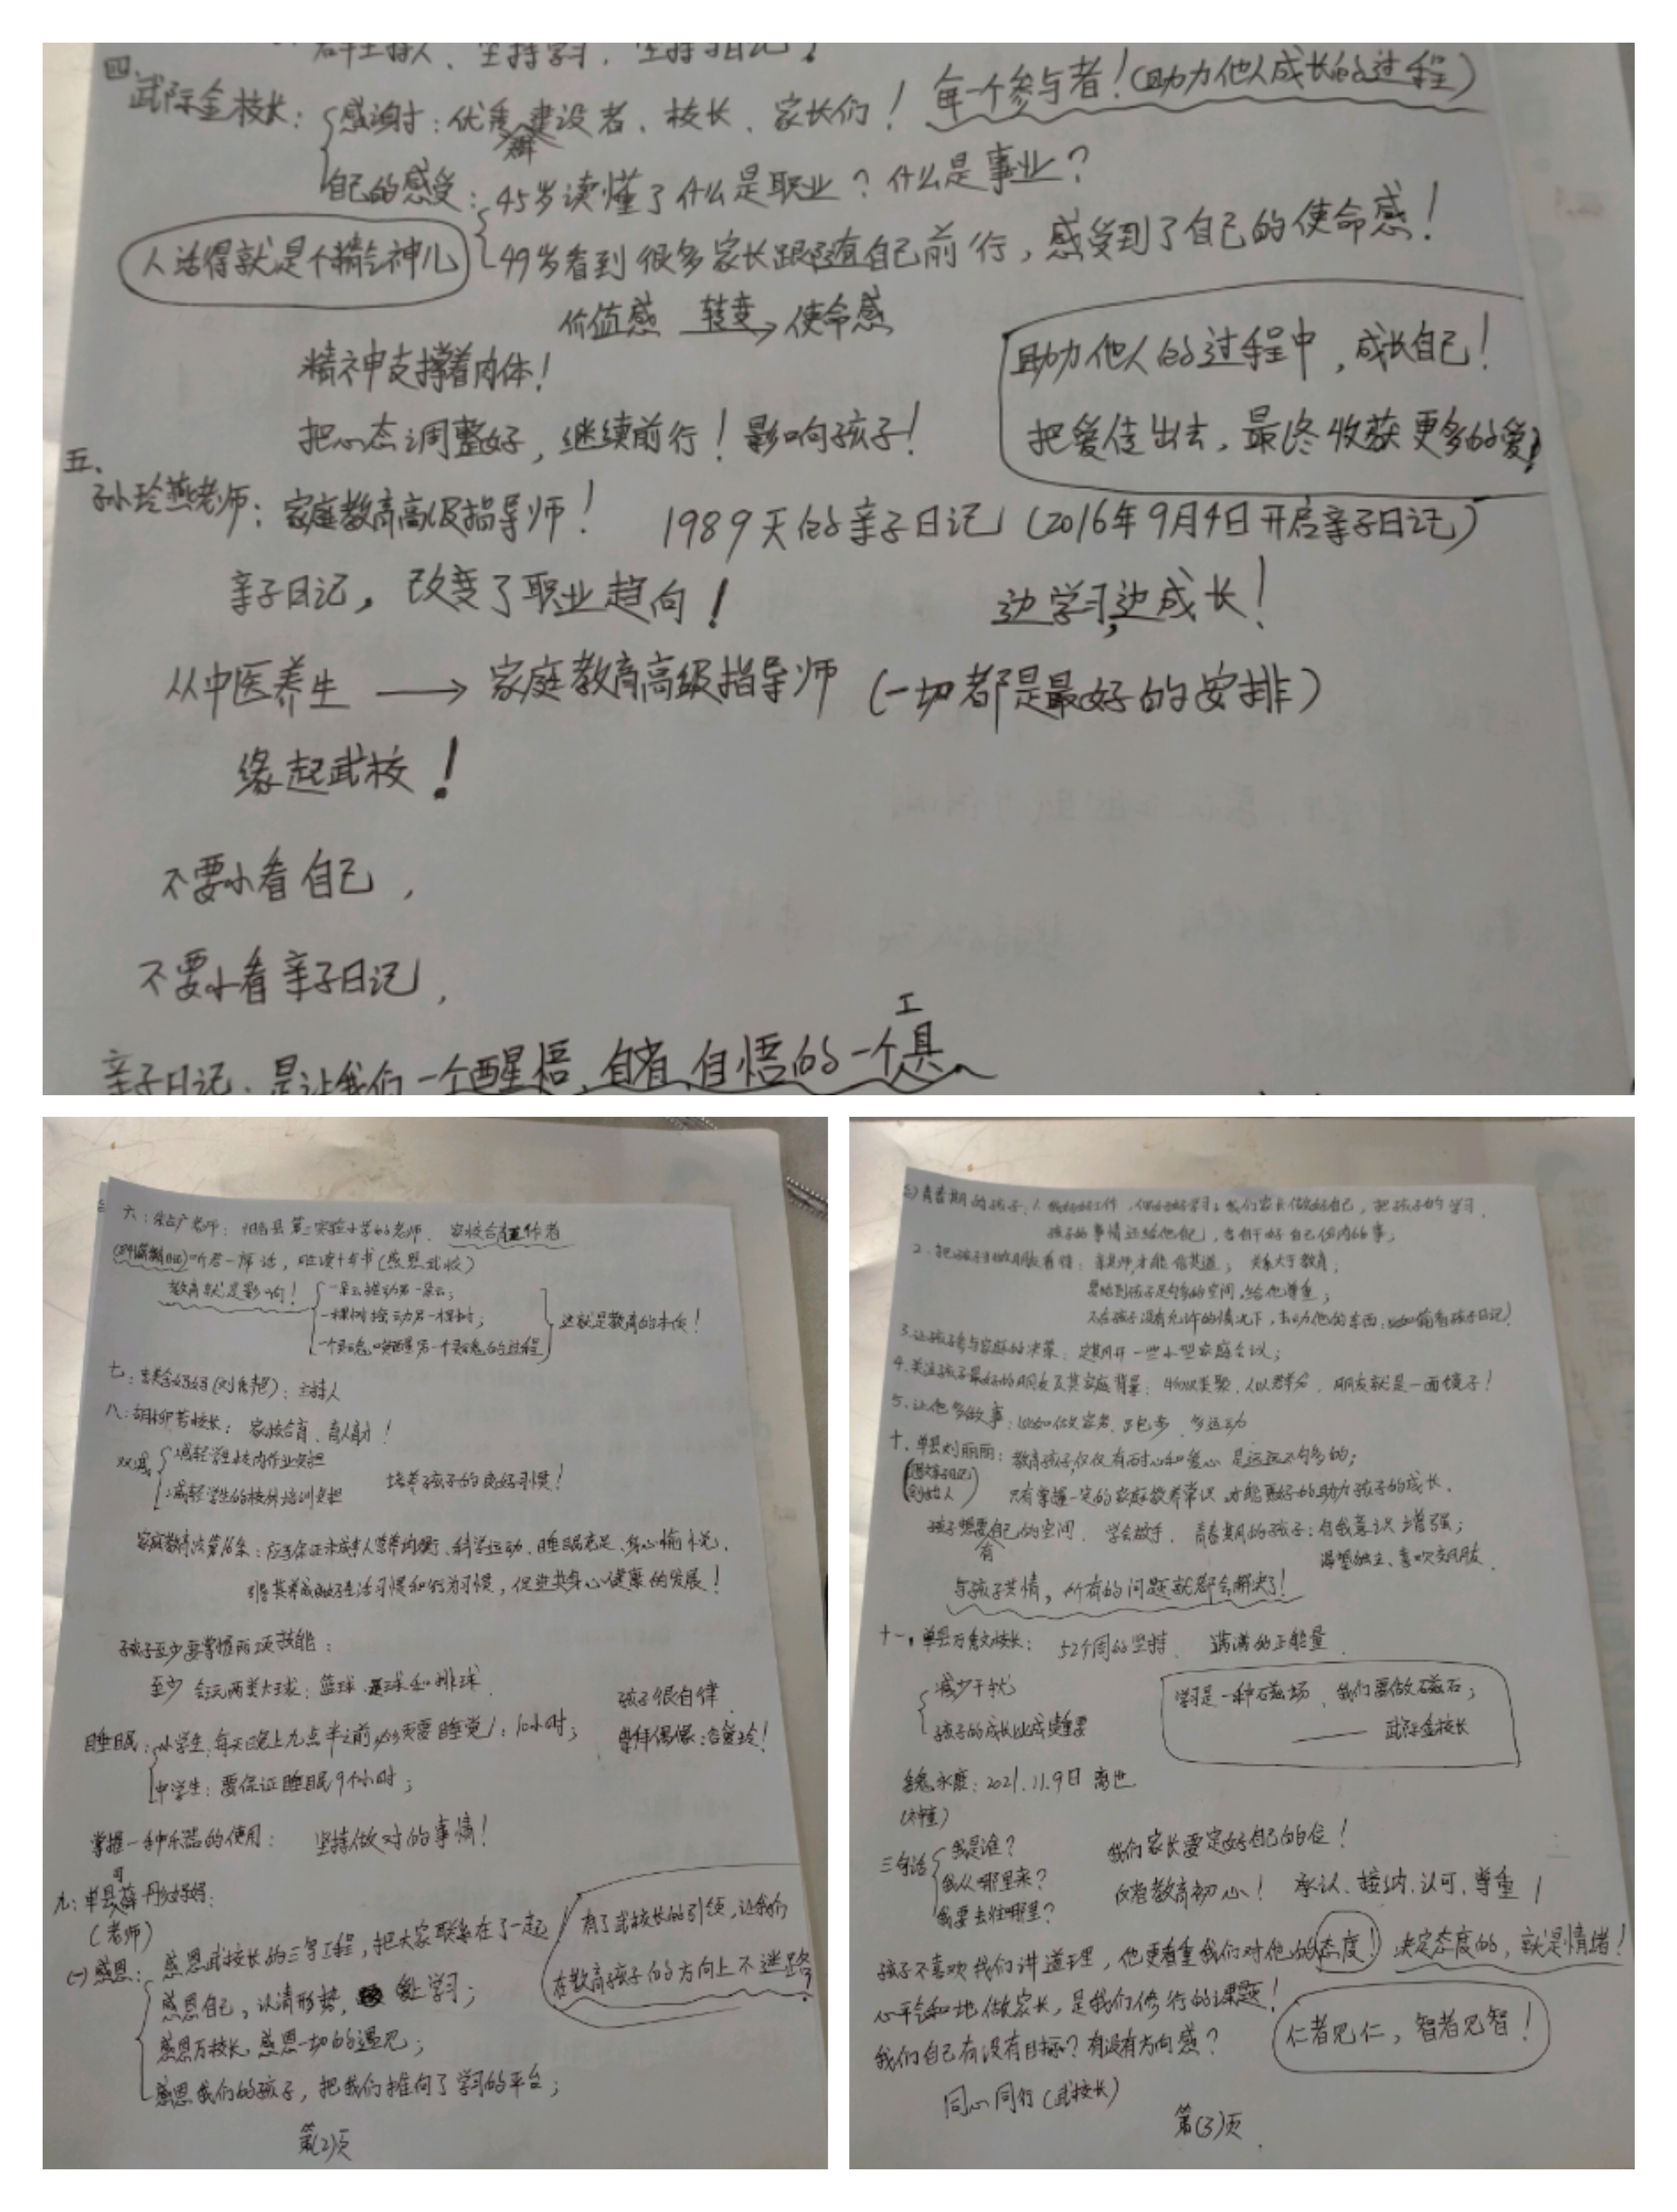 群主持人、坚持学习、坚持日记!
四、武际金校长:感谢:优秀建设者、校长、家长们!每一个参与者!(助力他人成长的过程)
群
自己的感受:45岁读懂了什么是职业?什么是事业?
人活得就是个精气神儿 49岁看到很多家长跟随自己前行,感受到了自己的使命感!
价值感 转变→ 使命感
精神支撑着肉体!
把心态调整好,继续前行!影响孩子!
助力他人的过程中,成长自己!
把爱传出去,最终收获更多的爱!
五、
孙玲燕老师:家庭教育高级指导师! 1989天的亲子日记(2016年9月4日开启亲子日记)
亲子日记,改变了职业趋向! 边学习,边成长!
从中医养生 → 家庭教育高级指导师(一切都是最好的安排)
缘起武校!
不要小看自己,
不要小看亲子日记,
亲子日记,是让我们一个醒悟、自省、自悟的一个工具。
六:老师:阳谷县第二实验小学的老师、家校合育工作者
听君一席话,胜读十年书(感恩武校)
教育就是影响! 一朵云推动另一朵云;
一棵树摇动另一棵树;
一个灵魂唤醒另一个灵魂的过程
这就是教育的本质!
七:好好(刘):主持人
八:胡柳苦校长:家校合育、育人育才!
双减 减轻学生校内作业负担
减轻学生的校外培训负担
培养孩子的良好习惯!
家庭教育法第16条:应当保证未成年人营养均衡、科学运动、睡眠充足、身心愉悦,
引导其养成良好生活习惯和行为习惯,促进其身心健康的发展!
孩子至少要掌握两项技能:
至少会玩两类大球:篮球、足球和排球
睡眠:小学生:每天晚上九点半之前必须要睡觉!:10小时;
中学生:要保证睡眠9个小时;
孩子很自律
崇拜偶像:谷爱玲!
掌握一种乐器的使用: 坚持做对的事情!
九:单县薛丹好好:
(老师)
(一)感恩:感恩武校长的三宽工程,把大家联系在了一起
感恩自己,认清形势,爱上学习;
感恩万校长,感恩一切的遇见;
感恩我们的孩子,把我们推向了学习的平台;
有了武校长的引领,让我们
在教育孩子的方向上不迷路!
第(2)页
(二)青春期的孩子:1.我好好工作,你好好学习;我们家长做好自己,把孩子的学习、
孩子的事情还给他们,各自干好自己份内的事;
2.把孩子当做朋友看待:亲其师,才能信其道;关系大于教育;
要给到孩子足够多的空间,给他尊重;
不在孩子没有允许的情况下,去动他的东西:(比如偷看孩子日记)
3.让孩子参与家庭的决策:定期开一些小型家庭会议;
4.关注孩子最好的朋友及其家庭背景:物以类聚、人以群分、朋友就是一面镜子!
5.让他多做事:比如做家务、跑步、多运动
十、单县刘丽丽:教育孩子,仅仅有耐心和爱心是远远不够多的;
创始人
只有掌握一定的家庭教养常识,才能更好的助力孩子的成长。
孩子想要有自己的空间、学会放手、青春期的孩子:自我意识增强;
渴望独立、喜欢交朋友
与孩子共情,所有的问题就都会解决了!
十一、单县万校长:52个周的坚持、满满的正能量
减少干扰
孩子的成长比成绩重要
学习是一种磁场,我们要做磁石;
—— 武际金校长
永庭:2021.11.9日离世
三句话 我是谁?
我从哪里来?
我要去往哪里?
我们家长要定好自己的位!
教育初心! 承认、接纳、认可、尊重!
孩子不喜欢我们讲道理,他更看重我们对他的态度!决定态度的,就是情绪!
心平气和地做家长,是我们修行的课题!
我们自己有没有目标?有没有方向感?
仁者见仁,智者见智!
同心同行(武校长)
第(3)页